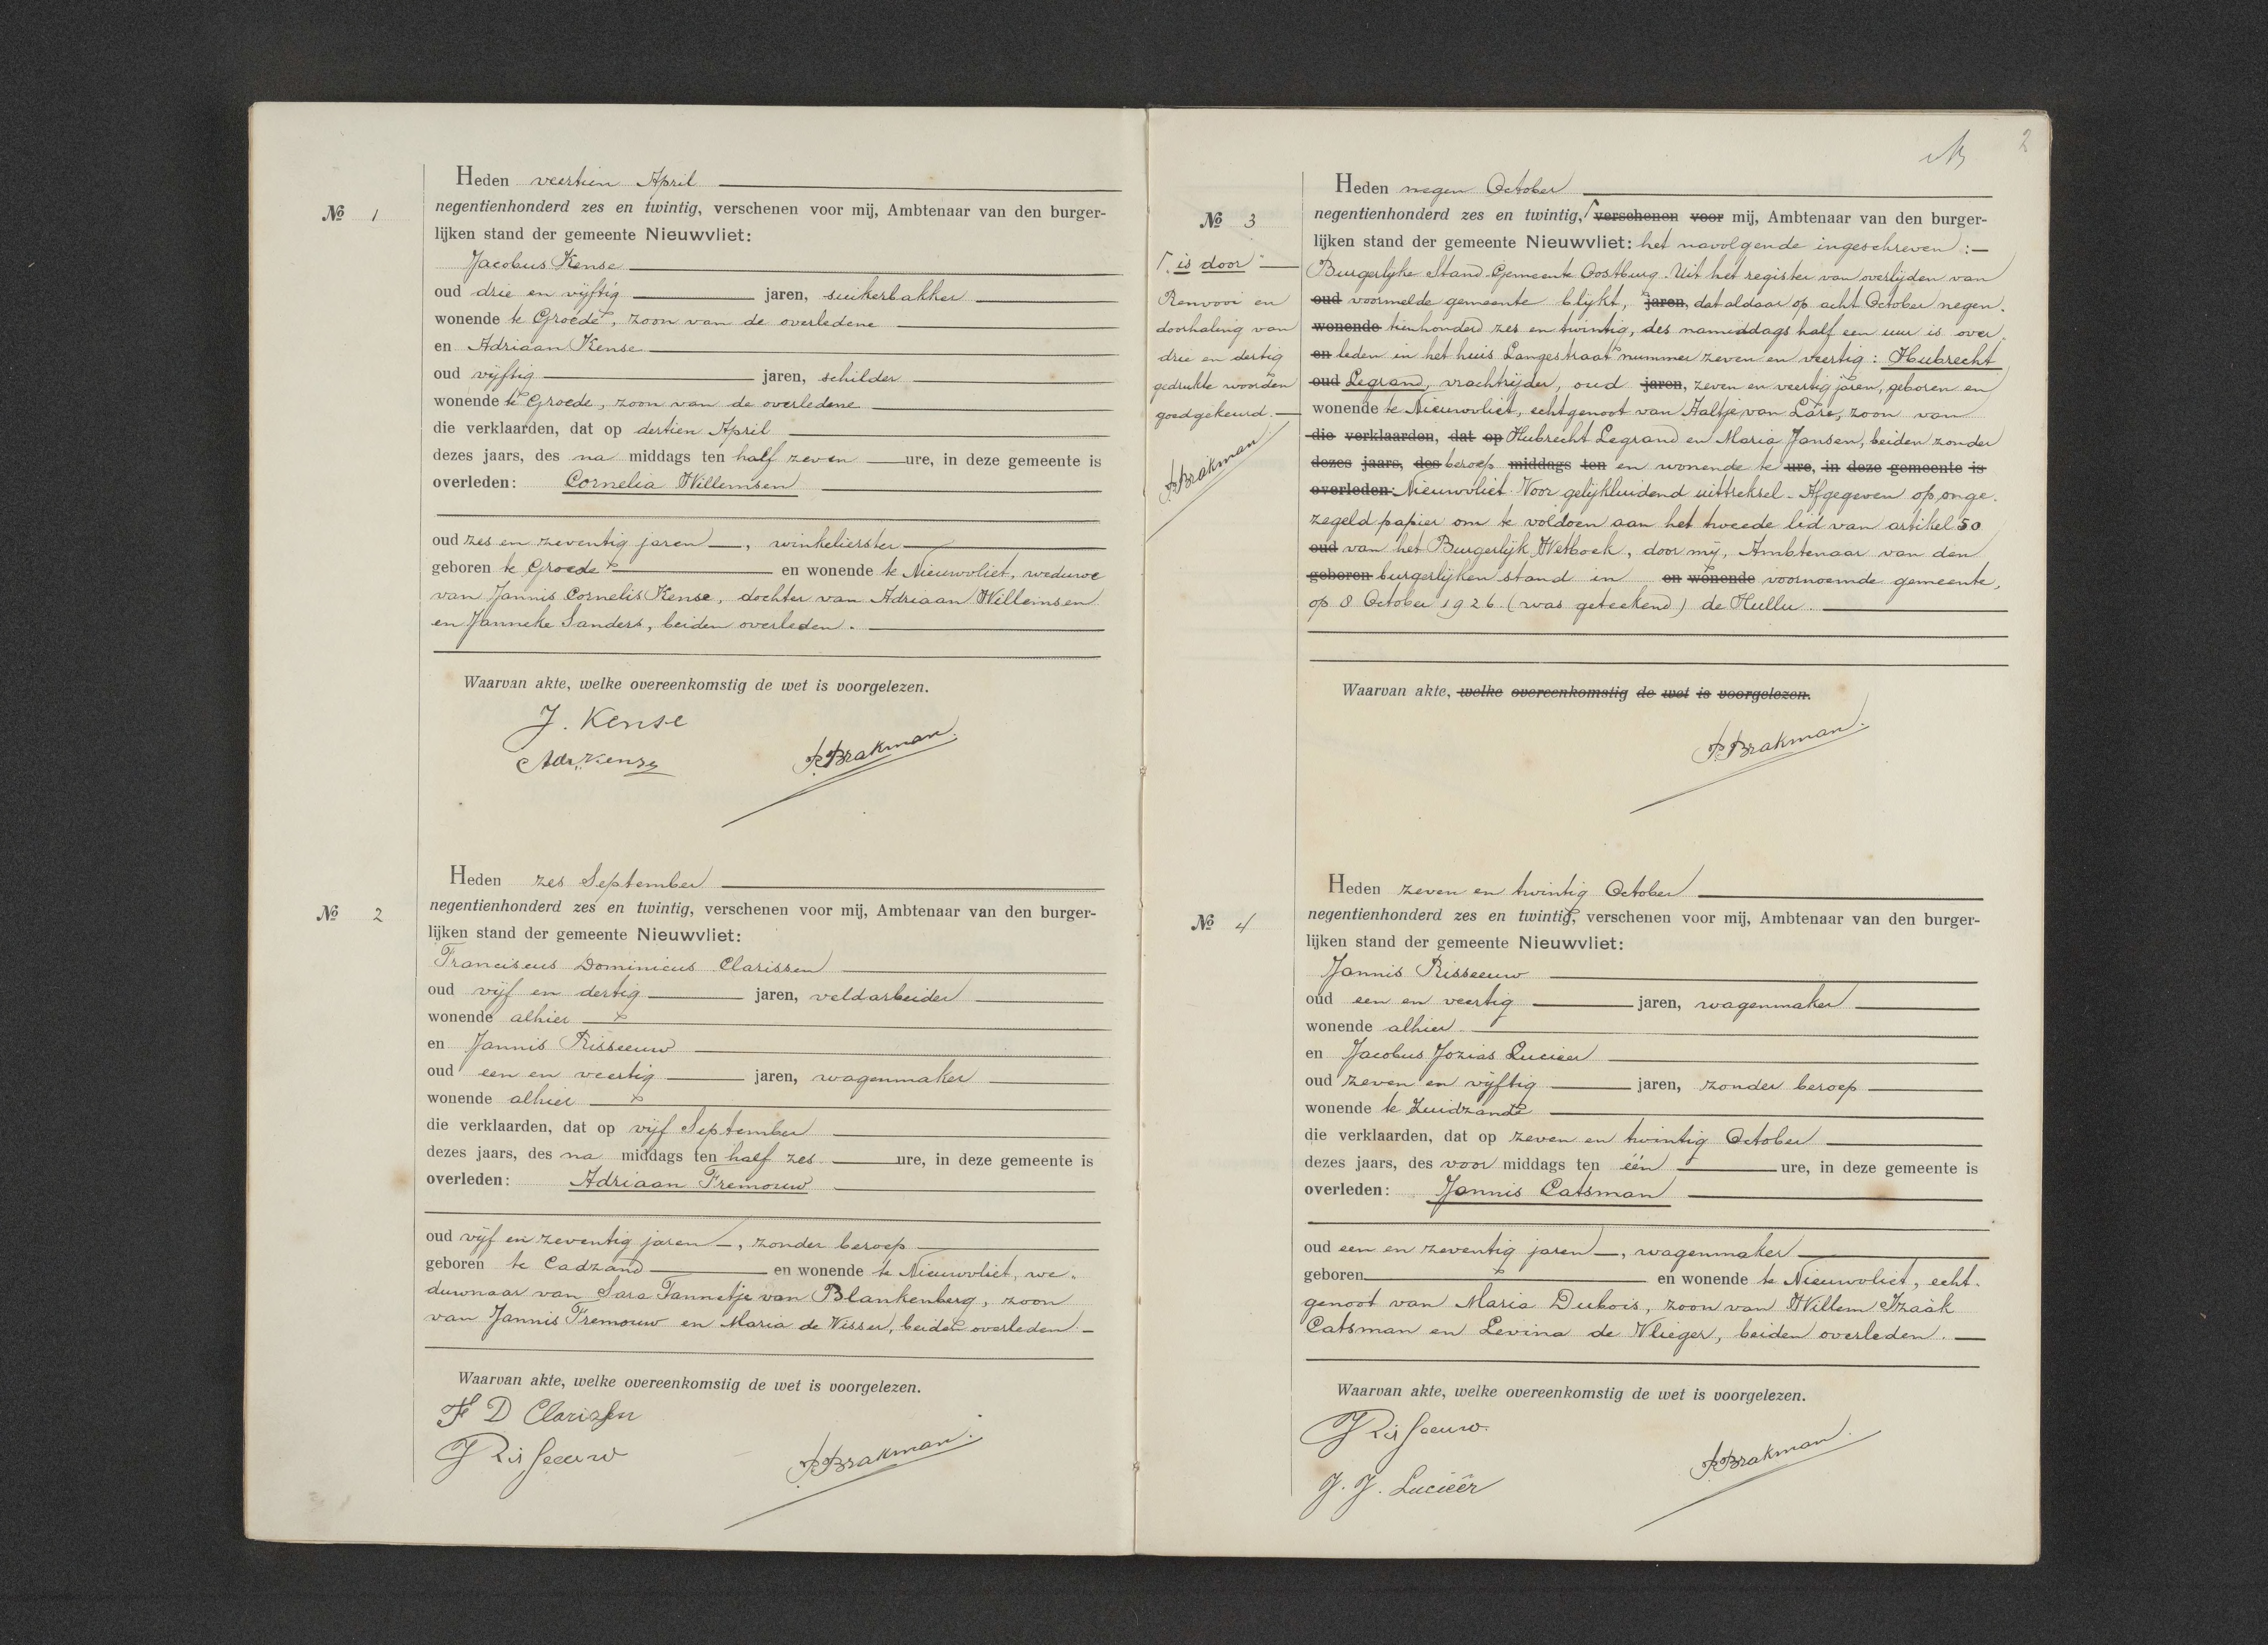 Heden veertien April
No 1
negentienhonderd zes en twintig, verschenen voor mij, Ambtenaar van den burger-
lijken stand der gemeente Nieuwvliet:
Jacobus Kense
oud drie en vijftig jaren, suikerbakker
wonende te Groede, zoon van de overledene
en Adriaan Kense
oud vijftig jaren, schilder
wonende te Groede, zoon van de overledene
die verklaarden, dat op dertien April
dezes jaars, des na middags ten half zeven ure, in deze gemeente is
overleden: Cornelia Willemsen
oud zes en zeventig jaren —, winkelierster
geboren te Groede en wonende te Nieuwvliet, weduwe
van Jannis Cornelis Kense, dochter van Adriaan Willemsen
en Janneke Sanders, beiden overleden.
Waarvan akte, welke overeenkomstig de wet is voorgelezen.
J. Kense
Adr. Kense
P. Brakman.
Heden zes September
No 2
negentienhonderd zes en twintig, verschenen voor mij, Ambtenaar van den burger-
lijken stand der gemeente Nieuwvliet:
Franciscus Dominicus Clarissen
oud vijf en dertig jaren, veldarbeider
wonende alhier
en Jannis Risseeuw
oud een en veertig jaren, wagenmaker
wonende alhier
die verklaarden, dat op vijf September
dezes jaars, des na middags ten half zes ure, in deze gemeente is
overleden: Adriaan Fremouw
oud vijf en zeventig jaren —, zonder beroep
geboren te Cadzand en wonende te Nieuwvliet, we-
duwnaar van Sara Tannetje van Blankenberg, zoon
van Jannis Fremouw en Maria de Visser, beiden overleden. —
Waarvan akte, welke overeenkomstig de wet is voorgelezen.
F D Clarissen
J Risseeuw
P. Brakman.
2
Heden negen October
No 3
negentienhonderd zes en twintig, ⌈ verschenen voor mij, Ambtenaar van den burger-
lijken stand der gemeente Nieuwvliet: het navolgende ingeschreven :—
⌈ is door —
Renvooi en
doorhaling van
drie en dertig
gedrukte woorden
goedgekeurd. —
P. Brakman
Burgerlijke Stand Gemeente Oostburg. Uit het register van overlijden van
oud voormelde gemeente blijkt, jaren, dat aldaar op acht October negen-
wonende tienhonderd zes en twintig, des namiddags half een uur is over-
en leden in het huis Langestraat nummer zeven en veertig: Hubrecht
oud Legrand, vrachtrijder, oud jaren, zeven en veertig jaren, geboren en
wonende te Nieuwvliet, echtgenoot van Aaltje van Lare, zoon van
die verklaarden, dat op Hubrecht Legrand en Maria Jansen, beiden zonder
dezes jaars, des beroep middags ten en wonende te ure, in deze gemeente is
overleden: Nieuwvliet. Voor gelijkluidend uittreksel. Afgegeven op onge-
zegeld papier om te voldoen aan het tweede lid van artikel 50
oud van het Burgerlijk Wetboek, door mij, Ambtenaar van den
geboren burgerlijken stand in en wonende voornoemde gemeente,
op 8 October 1926 (was geteekend) de Hullu.
Waarvan akte, welke overeenkomstig de wet is voorgelezen.
P. Brakman.
Heden zeven en twintig October
No 4
negentienhonderd zes en twintig, verschenen voor mij, Ambtenaar van den burger-
lijken stand der gemeente Nieuwvliet:
Jannis Risseeuw
oud een en veertig jaren, wagenmaker
wonende alhier
en Jacobus Jozias Lucieer
oud zeven en vijftig jaren, zonder beroep
wonende te Zuidzande
die verklaarden, dat op zeven en twintig October
dezes jaars, des voor middags ten één ure, in deze gemeente is
overleden: Jannis Catsman
oud een en zeventig jaren —, wagenmaker
geboren en wonende te Nieuwvliet, echt-
genoot van Maria Dubois, zoon van Willem Izaäk
Catsman en Levina de Vlieger, beiden overleden. —
Waarvan akte, welke overeenkomstig de wet is voorgelezen.
J Risseeuw.
J. J. Lucieër
P. Brakman.